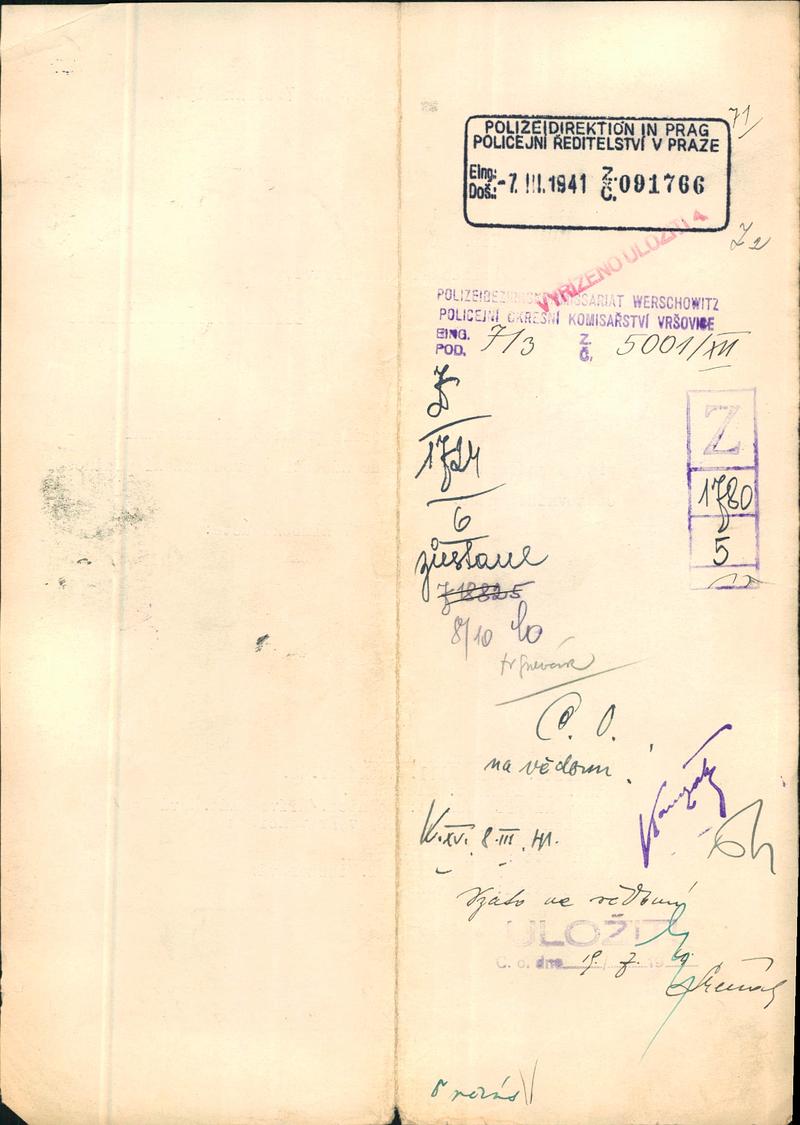 71/
POLIZEIDIREKTION IN PRAG
POLICEJNÍ ŘEDITELSTVÍ V PRAZE
Eing.: Doš.: -7. III. 1941 Z. Č. 091766
VYŘÍZENO ULOŽITI 4
POLIZEIBEZIRKSKOMMISSARIAT WERSCHOWITZ
POLICEJNÍ OKRESNÍ KOMISAŘSTVÍ VRŠOVICE
EING. POD. 7/3 Z. Č. 5001/XII
Z
1724
6
zůstane
Z
1780
5
8/10
C. O.
na vědomí
K. XV. 8. III. 41.
Vzato na vědomí
ULOŽIT
C. o. dne 19.